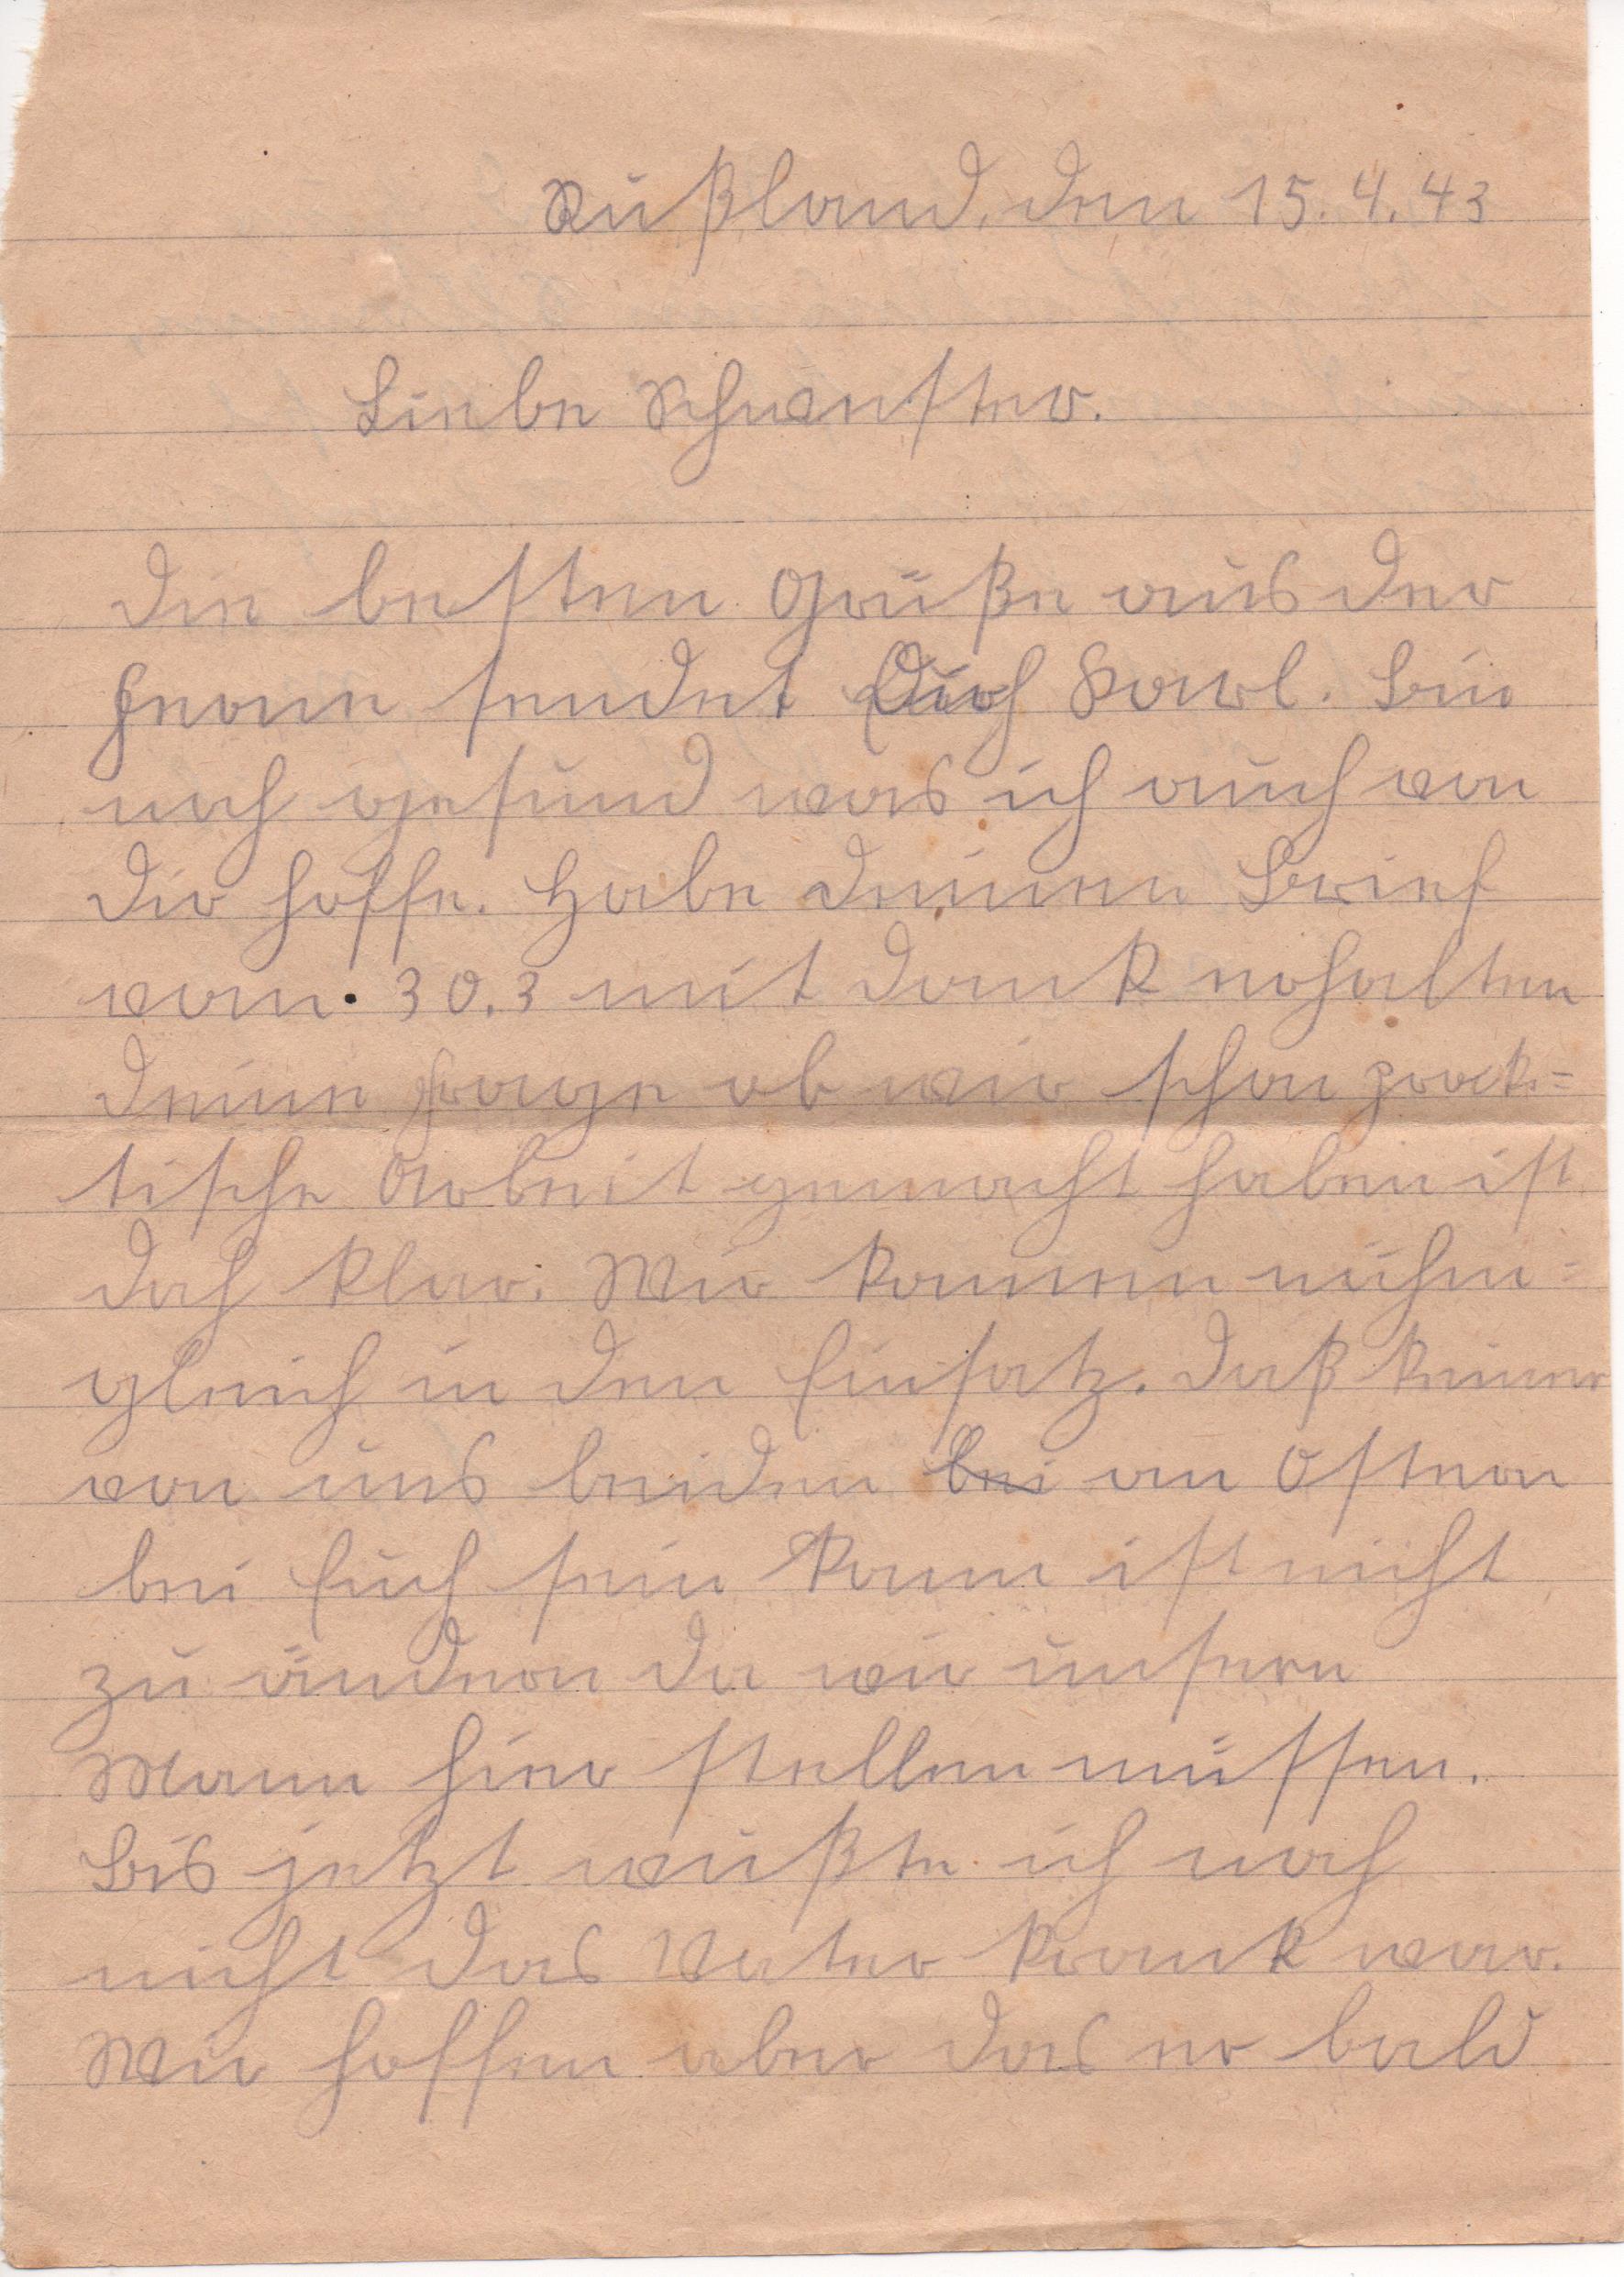 Rußland, den 15.4.43
Liebe Schwester.
Die besten Grüße aus der
Ferne sendet Dir Karl. Bin
noch gesund was ich auch von
Dir hoffe. Habe deinen Brief
vom 30.3 mit Dank erhalten
Deine Frage ob wir schon prak=
tische Arbeit gemacht haben ist
doch klar. Wir kommen
gleich in den Einsatz. Daß keiner
von uns beiden bei an Ostern
bei Euch sein kann ist nicht
zu ändern da wir unsern
Mann hier stellen müssen.
Bis jetzt wußte ich noch
nicht das Vater krank war.
Wir hoffen aber das er bald